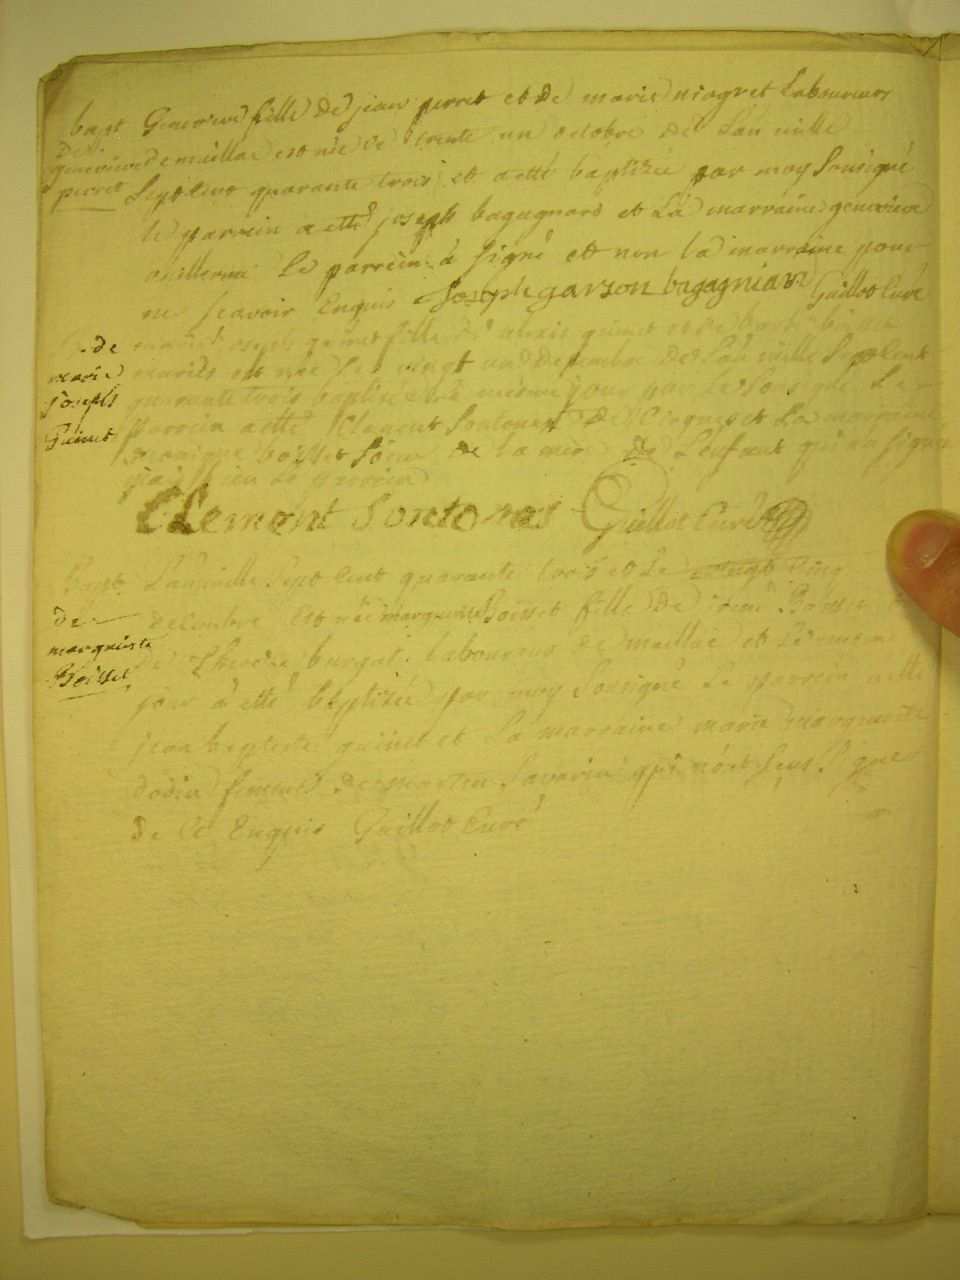 bapt
de
genevieve
perret
Genevieve fille de jean perret et de marie niogret Laboureurs
de maillac est née le trente un octobre de L'an mille
Sept Cent quarante trois et a etté baptizée par moy Sousigné
le parrein a etté joseph bagagnard et La marraine genevieve
Le parrein à signé et non la marraine pour
ne scavoir Enquis Joseph garson bagagniard Guillot Curé
B. de
marie
joseph
Guinet
marie joseph guinet fille de alexis guinet et de
mariés est née Le vingt un decembre de L'an mille Sept Cent
quarante trois baptisée Le même jour par Le Sous Le
parrein a etté Clement Sontonas de et La marraine
boisset soeur de la mere de L'enfant qui n'a signé
Le parrein
Clement Sontonas Guillot Curé
Bapt
de
marguerite
Boisset
L'an mille Sept Cent quarante trois et Le vingt Cinq
decembre Est née marguerite Boisset fille de Boisset
de burgat Laboureurs de maillac et Le meme
jour à etté Baptizée par moy Sousigné Le parrein a etté
jean baptiste guinet et La marraine marie marguerite
dodin femme de Savarin qui n'ont Sçus Signer
de Ce Enquis Guillot Curé